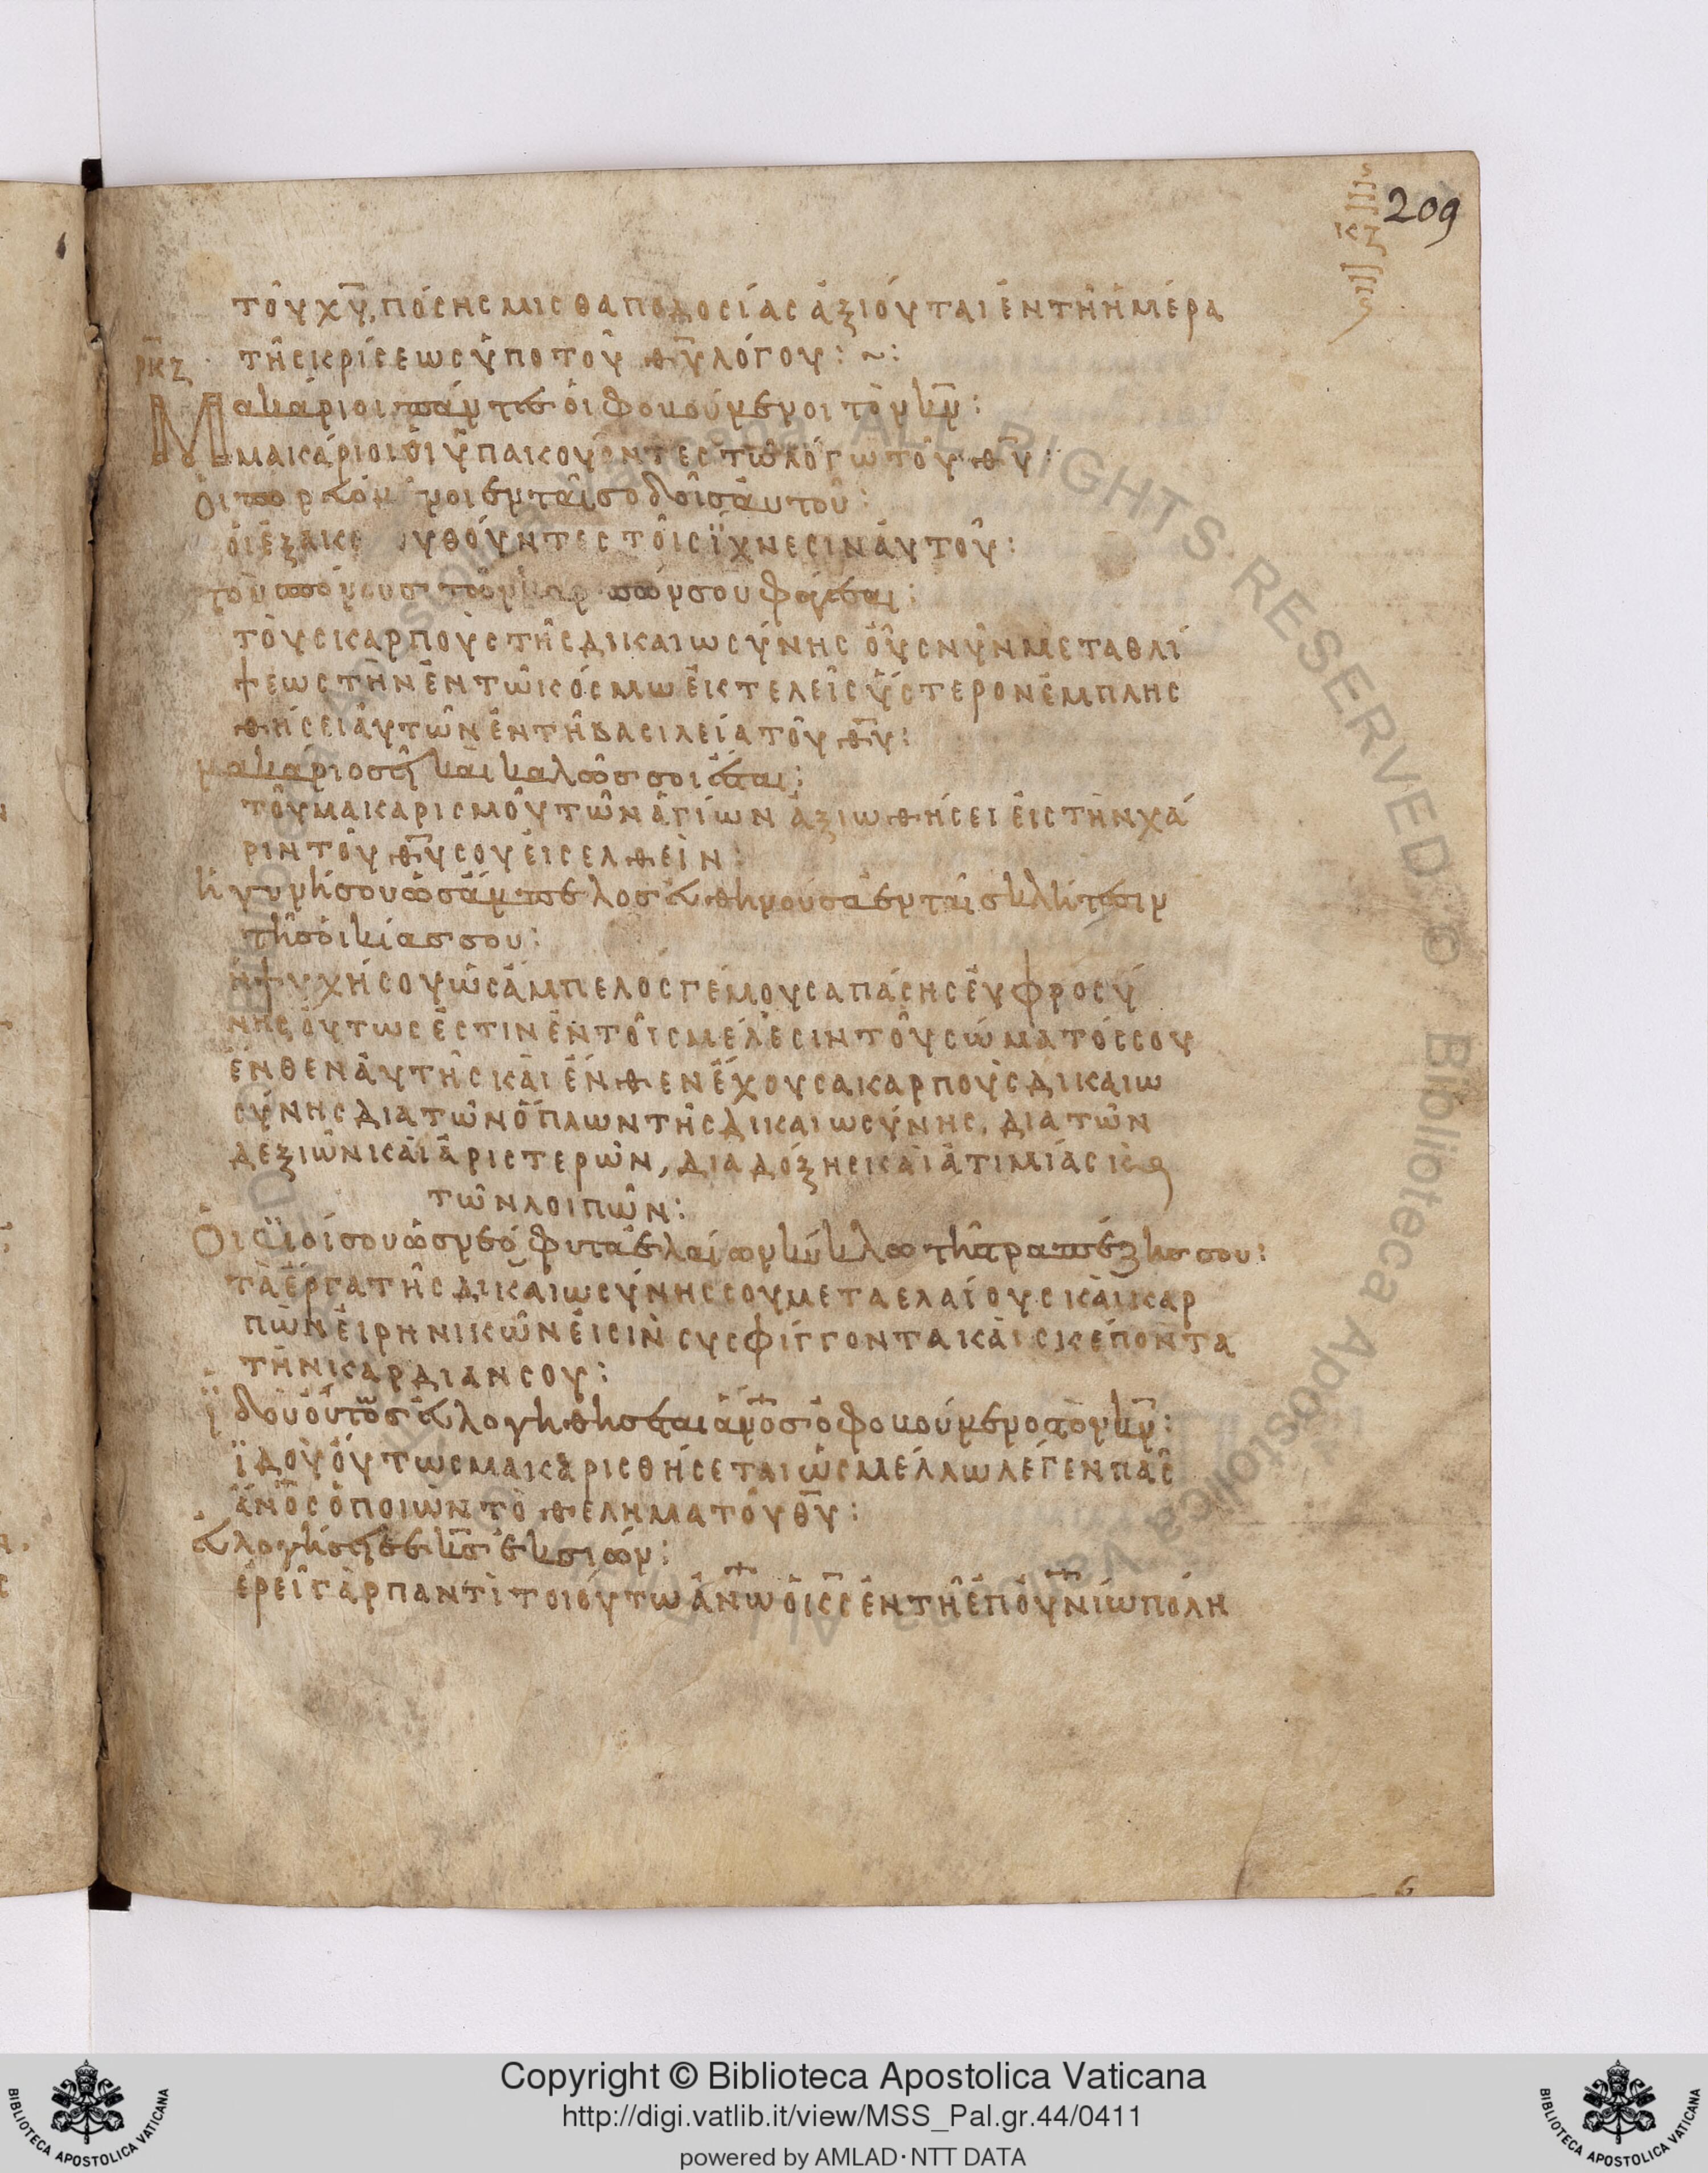 209
κζ
τοῦ χυ, πόσης μισθαποδοσίας ἀξιοῦται ἐν τῇ ἡμέρα
ρκζ τῆς κρίσεως ὑπο τοῦ θυ λόγου: ~:
Μακάριοι πάντες οἱ φοβούμενοι τὸν κν:
μακάριοι οἱ ὑπακούοντες τῶ λόγω τοῦ θυ:
Ὁι πορευόμενοι ἐν ταῖς ὁδοῖς ἀυτοῦ:
ὁι ἐξακολουθοῦντες τοῖς ἴχνεσιν ἀυτοῦ:
τοὺς πόνους τῶν καρπῶν σου φάγεσαι:
τοὺς καρποὺς τῆς δικαιωσύνης οὓς νῦν μετα θλί
ψεως τὴν ἐν τῶ κόσμω ἐκτελεῖς ὕστερον ἐμπλησ
θήσει ἀυτῶν ἐν τῆ βασιλεία τοῦ θυ:
μακάριος εἶ καὶ καλῶς σοι ἔσται:
τοῦ μακαρισμοῦ τῶν ἁγίων ἀξιωθήσει ἐις τὴν χα
ριν τοῦ θυ σου ἐισελθεῖν:
ἡ γυνή σου ὡς ἄμπελος ἐυθηνοῦσα ἐν ταῖς κλίτεσιν
τῆς οἰκίας σου:
ἡ ψυχή σου ὡς ἄμπελος γέμουσα πάσης ἐυφροσύ
νης οὕτως ἐστὶν ἐν τοῖς μέλεσιν τοῦ σώματός σου
ἔνθεν ἀυτῆς καὶ ἔνθεν ἔχουσα καρποὺς δικαιω
σύνης δια τῶν ὅπλων τῆς δικαιωσύνης, δια τῶν
δεξιῶν καὶ ἀριστερῶν, δια δόξης καὶ ἀτιμίας κς
τῶν λοιπῶν:
Ὁι υἱοί σου ὡς νεόφυτα ἐλαίων κύκλω τῆς τραπέζης σου:
τὰ ἔργα τῆς δικαιωσύνης σου μετα ελαίους καὶ καρ
πῶν ἐιρηνικῶν ἐισὶν συσφίγγοντα καὶ σκέποντα
τὴν καρδιαν σου:
ἰδοὺ οὕτως ἐυλογηθήσεται ἄνος ὁ φοβούμενος τὸν κν:
ἰδοὺ οὕτως μακαρισθήσεται ὡς μέλλω λέγεν πᾶς
ἄνος ὁ ποιῶν τὸ θελημα τοῦ θυ:
ἐυλογήσει σε κς ἐκ σιών:
ἐρεῖ γὰρ παντὶ τοιούτω ἀνω ὁ ις ἐν τῆ ἐπουνίω πόλη
Copyright © Biblioteca Apostolica Vaticana
http://digi.vatlib.it/view/MSS_Pal.gr.44/0411
powered by AMLAD·NTT DATA
BIBLIOTECA APOSTOLICA VATICANA
BIBLIOTECA APOSTOLICA VATICANA